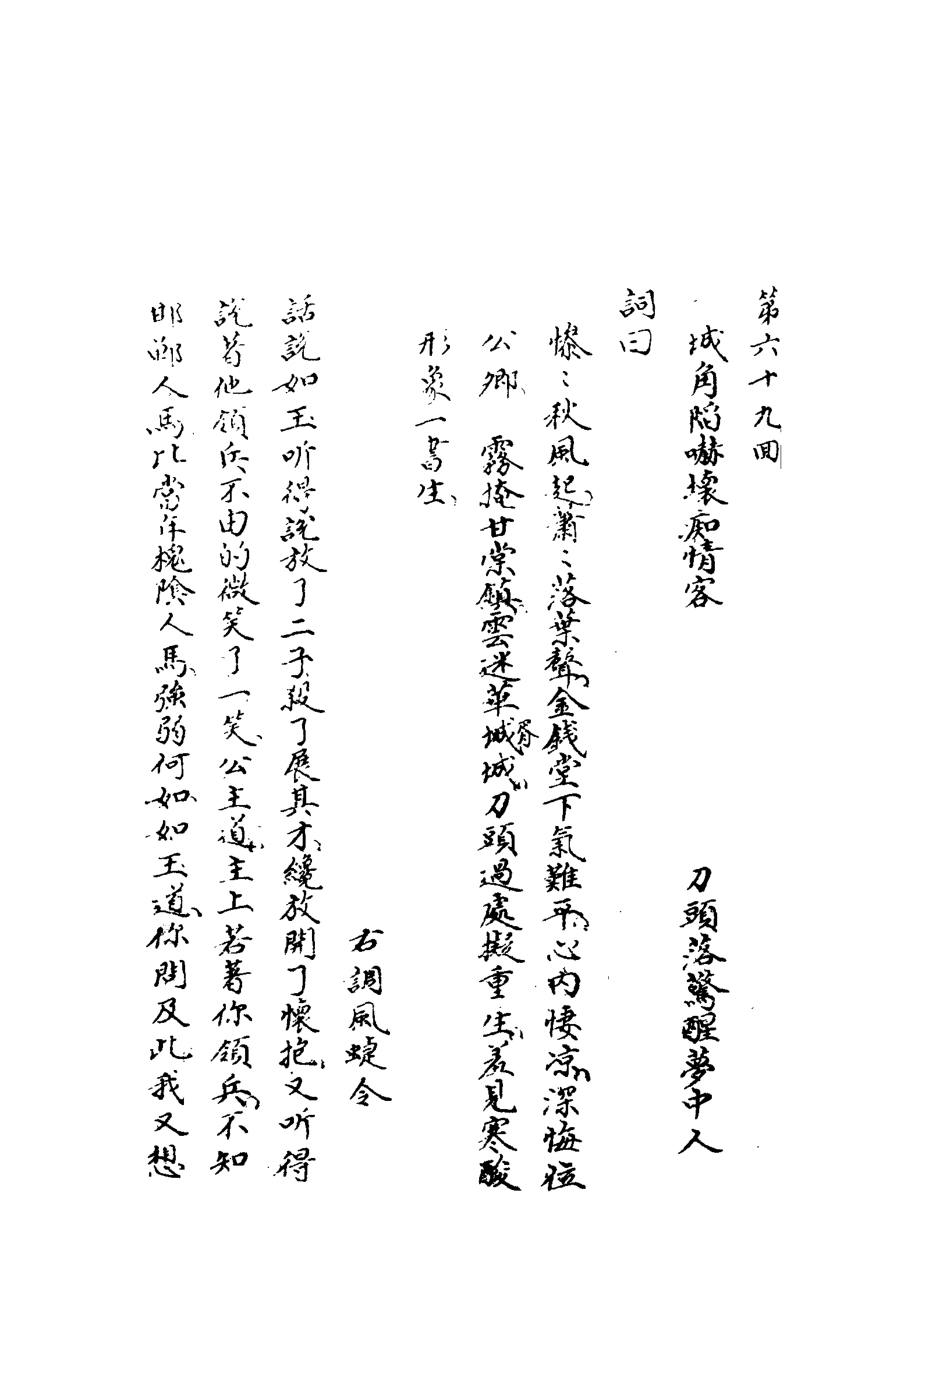 第六十九囬
城角陷嚇壞痴情客 刀頭落驚醒夢中人
詞曰
慘〻秋風起蕭〻落葉聲金銭堂下氣難平心内悽凉深悔位
公卿 霧掩甘棠鎮雲迷華胥城城刀頭過處擬重生羞見寒酸
形象一書生
右調風蝶令
話說如玉听得說放了二子殺了展其才纔放開了懷抱又听得
說着他領兵不由的微笑了一笑公主道主上若着你領兵不知
邯鄲人馬比當年槐陰人馬強弱何如如玉道你問及此我又想